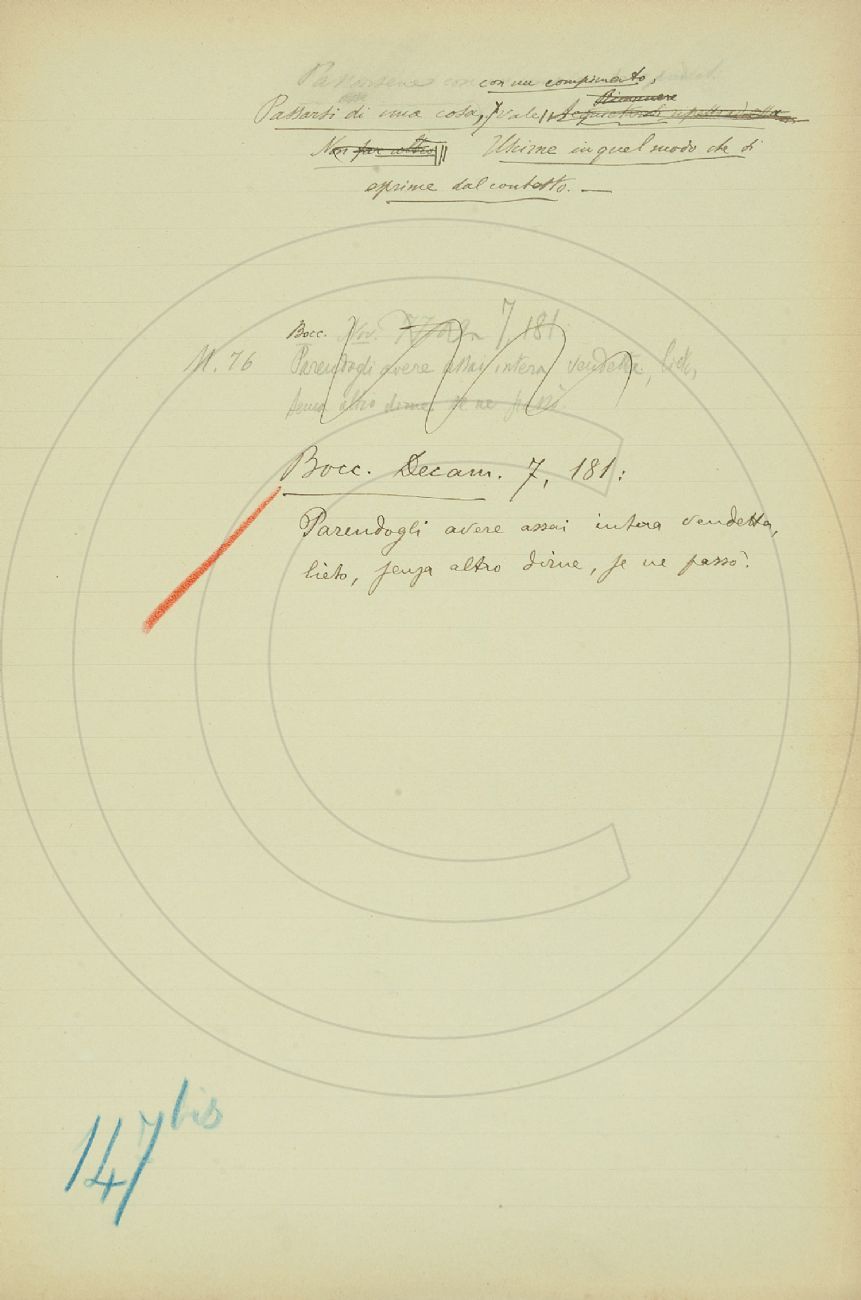 Passarsene con
con un compimento,
Rimanere
Passarsi di una cosa, vale Acquietarsi
Non far altro Uscirne in quel modo che si
esprime dal contesto. —
Bocc. Nov. 77 7 181
N. 76 Parendogli avere assai intera vendetta, lieto,
senza altro dirne se ne passò.
Bocc. Decam. 7, 181:
Parendogli avere assai intera vendetta,
lieto, senza altro dirne, se ne passò.
147 bis